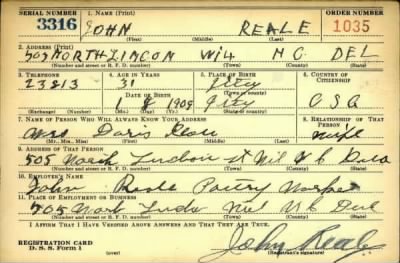 SERIAL NUMBER 1. NAME (Print) ORDER NUMBER
3316 JOHN REALE 1035
(First) (Middle) (Last)
2. ADDRESS (Print)
505 NORTH LINCON Wil N C DEL
(Number and street or R. F. D. number) (Town) (County) (State)
3. TELEPHONE 4. AGE IN YEARS 5. PLACE OF BIRTH 6. COUNTRY OF CITIZENSHIP
23813 31
(Town or county)
DATE OF BIRTH
1 8 1909 U S A
(Exchange) (Number) (Mo.) (Day) (Yr.) (State or country)
7. NAME OF PERSON WHO WILL ALWAYS KNOW YOUR ADDRESS 8. RELATIONSHIP OF THAT PERSON
Mrs Doris Reale Wife
(Mr., Mrs., Miss) (First) (Middle) (Last)
9. ADDRESS OF THAT PERSON
505 North St Wil N C
(Number and street or R. F. D. number) (Town) (County) (State)
10. EMPLOYER'S NAME
John Reale
11. PLACE OF EMPLOYMENT OR BUSINESS
505 North N C Del
(Number and street or R. F. D. number) (Town) (County) (State)
I AFFIRM THAT I HAVE VERIFIED ABOVE ANSWERS AND THAT THEY ARE TRUE.
REGISTRATION CARD John Reale
D. S. S. Form 1 (over) (Registrant's signature)